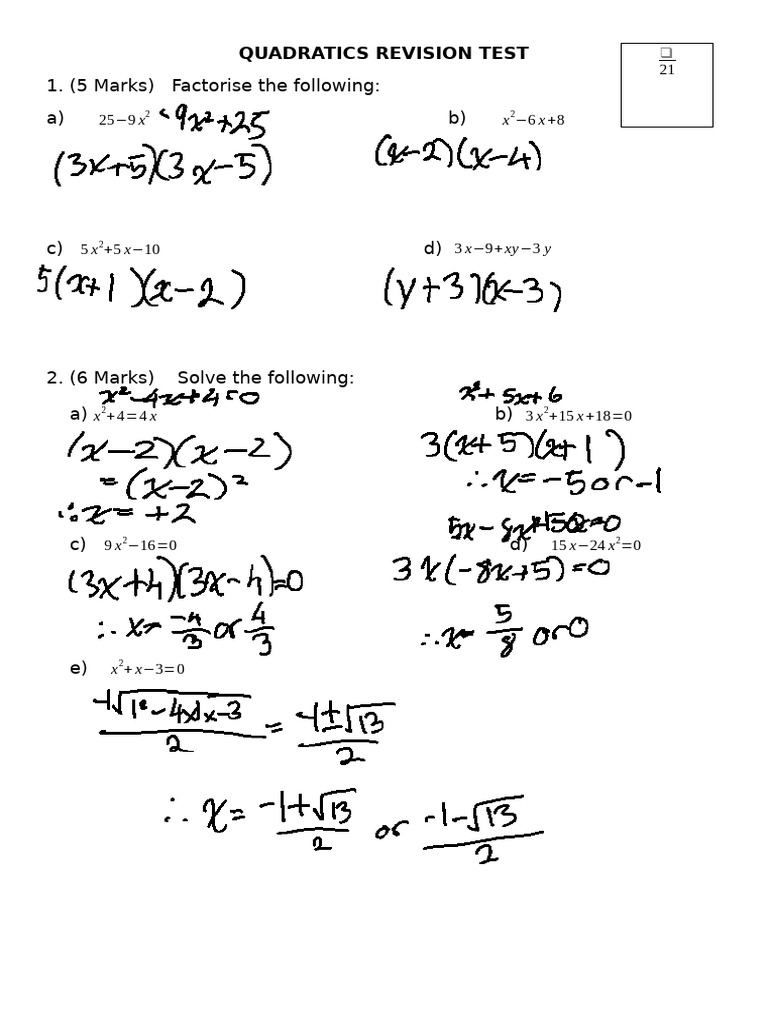 QUADRATICS REVISION TEST
❑/21
1. (5 Marks) Factorise the following:
a) 25−9x² -9x²+25
(3x+5)(3x-5)
b) x²−6x+8
(x-2)(x-4)
c) 5x²+5x−10
5(x+1)(x-2)
d) 3x−9+xy−3y
(y+3)(x-3)
2. (6 Marks) Solve the following:
x²-4x+4=0
a) x²+4=4x
(x-2)(x-2)
=(x-2)²
∴x=+2
x²+5x+6
b) 3x²+15x+18=0
3(x+5)(x+1)
∴x=-5 or -1
c) 9x²−16=0
(3x+4)(3x-4)=0
∴x=-4/3 or 4/3
d) 15x−24x²=0
3x(-8x+5)=0
∴x=5/8 or 0
e) x²+x−3=0
-1√1²-4x1x-3/2 = -1±√13/2
∴x=-1+√13/2 or -1-√13/2